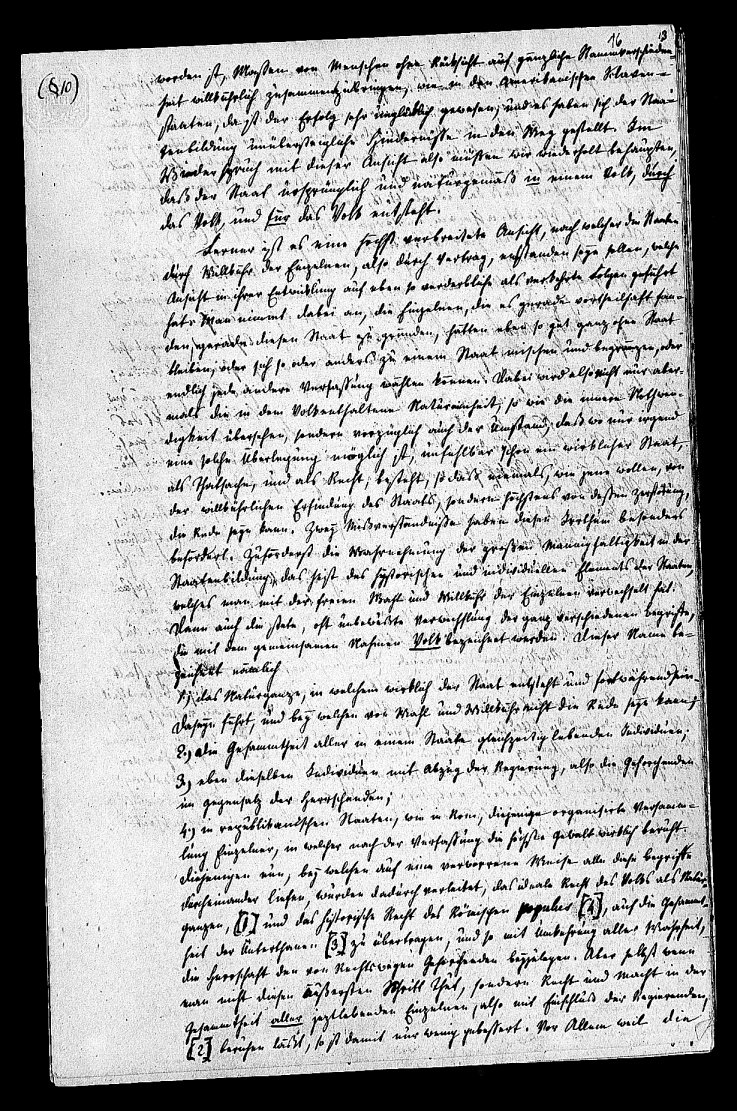 16 3
(§ 10)
worden ist, Massen von Menschen ohne Rücksicht auf gänzliche Stammverschieden-
heit willkührlich zusammenzubringen, wie in den Amerikanischen Sklaven-
staaten, da ist der Erfolg sehr unglücklich gewesen, und es haben sich der Staa-
tenbildung unübersteigliche Hindernisse in den Weg gestellt. Im
Widerspruch mit dieser Ansicht also müssen wir wiederholt behaupten,
daß der Staat ursprünglich und naturgemäß in einem Volk, durch
das Volk, und für das Volk entsteht.
Ferner ist es eine höchst verbreitete Ansicht, nach welcher die Staaten
durch Willkühr der Einzelnen, also durch Vertrag, entstanden seyn sollen, welche
Ansicht in ihrer Entwicklung auf eben so verderbliche als verkehrte Folgen geführt
hat. Man nimmt dabei an, die Einzelnen, die es gerade vortheilhaft fan-
den, gerade diesen Staat zu gründen, hätten eben so gut ganz ohne Staat
bleiben, oder sich so oder anders zu einem Staat mischen und begränzen, oder
endlich jede andere Verfassung wählen können. Dabei wird also nicht nur aber-
mals die in dem Volk enthaltene Natureinheit, so wie die innere Nothwen-
digkeit übersehen, sondern vorzüglich auch der Umstand, daß wo nur irgend
eine solche Überlegung möglich ist, unfehlbar schon ein wirklicher Staat,
als Thatsache, und als Recht, besteht, so daß niemals, wie jene wollen, von
der willkührlichen Erfindung des Staats, sondern höchstens von dessen Zerstörung,
die Rede seyn kann. Zwey Misverständnisse haben diesen Irrthum besonders
befördert. Zuförderst die Wahrnehmung der großen Mannigfaltigkeit in der
Staatenbildung, das heist des historischen und individuellen Elements der Staaten,
welches man mit der freien Wahl und Willkühr der Einzelnen verwechselt hat.
Dann auch die stete, oft unbewußte Verwechslung der ganz verschiedenen Begriffe,
die mit dem gemeinsamen Nahmen Volk bezeichnet werden. Dieser Name be-
zeichnet nämlich
1.) das Naturganze, in welchem wirklich der Staat entsteht und fortwährend sein
Daseyn führt, und bey welchem von Wahl und Willkühr nicht die Rede seyn kann;
2.) die Gesammtheit aller in einem Staate gleichzeitig lebenden Individuen;
3.) eben dieselben Individuen mit Abzug der Regierung, also die Gehorchenden
im Gegensatz der Herrschenden;
4.) in republikanischen Staaten, wie in Rom, diejenige organisirte Versamm-
lung Einzelner, in welcher nach der Verfassung die höchste Gewalt wirklich beruht.
Diejenigen nun, bey welchen auf eine verworrene Weise alle diese Begriffe
durcheinander liefen, wurden dadurch verleitet, das ideale Recht des Volks als Natur-
ganzen, [1] und das historische Recht des Römischen populus [4], auf die Gesammt-
heit der Unterthanen [3] zu übertragen, und so mit Umkehrung aller Wahrheit,
die Herrschaft den von Rechtswegen Gehorchenden beyzulegen. Aber selbst wenn
man nicht diesen äußersten Schritt thut, sondern Recht und Macht in der
Gesammtheit aller jeztlebenden Einzelnen, also mit Einschluß der Regierenden,
[2] beruhen läßt, so ist damit nur wenig gebessert. Vor Allem weil die